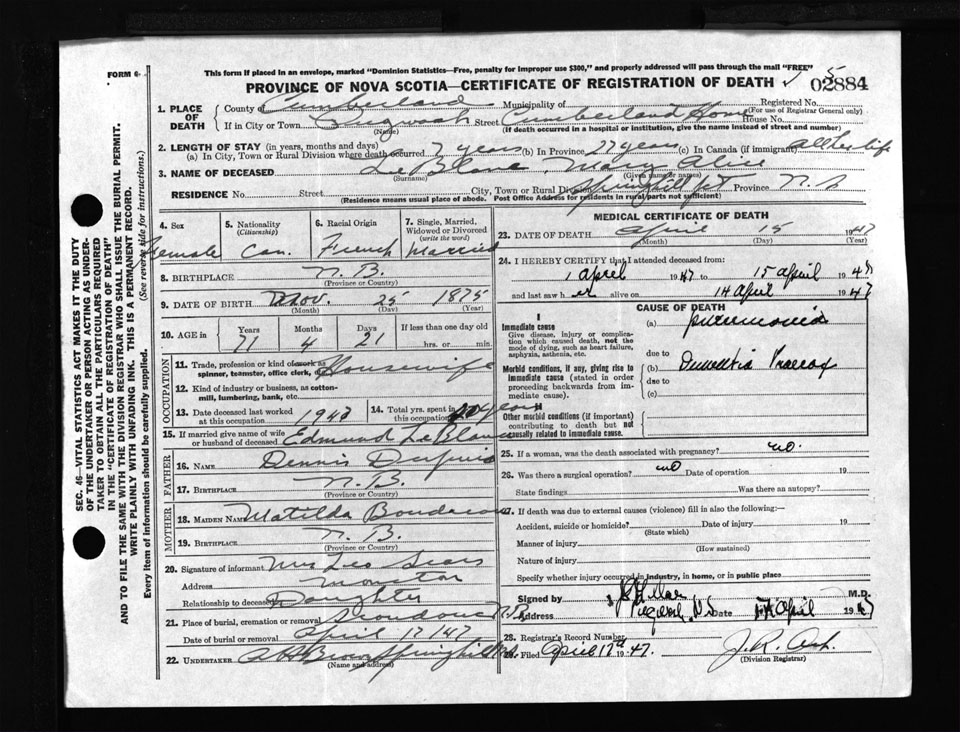 FORM 6-
This form if placed in an envelope, marked "Dominion Statistics—Free, penalty for improper use $300," and properly addressed will pass through the mail "FREE"
PROVINCE OF NOVA SCOTIA—CERTIFICATE OF REGISTRATION OF DEATH
5
02884
SEC. 46—VITAL STATISTICS ACT MAKES IT THE DUTY
OF THE UNDERTAKER OR PERSON ACTING AS UNDER-
TAKER TO OBTAIN ALL THE PARTICULARS REQUIRED
IN THE "CERTIFICATE OF REGISTRATION OF DEATH"
AND TO FILE THE SAME WITH THE DIVISION REGISTRAR WHO SHALL ISSUE THE BURIAL PERMIT.
WRITE PLAINLY WITH UNFADING INK. THIS IS A PERMANENT RECORD.
Every item of information should be carefully supplied. (See reverse side for instructions.)
1. PLACE OF DEATH
County of Cumberland Municipality of Registered No.
(For use of Registrar General only)
If in City or Town Pugwash Street Cumberland Home House No.
(Name) (If death occurred in a hospital or institution, give the name instead of street and number)
2. LENGTH OF STAY (in years, months and days)
(a) In City, Town or Rural Division where death occurred 7 years (b) In Province 27 years (c) In Canada (if immigrant) all her life
3. NAME OF DECEASED Le Blanc, Mary Alice
(Surname) (Given name or names)
RESIDENCE No. Street City, Town or Rural Division Springhill Jct Province N.S
(Residence means usual place of abode. Post Office Address for residents in rural parts not sufficient)
4. Sex Female
5. Nationality (Citizenship) Can.
6. Racial Origin French
7. Single, Married, Widowed or Divorced (write the word) Married
8. BIRTHPLACE N.B.
(Province or Country)
9. DATE OF BIRTH Nov. 25 1875
(Month) (Day) (Year)
10. AGE in Years 71 Months 4 Days 21 If less than one day old
hrs. or min.
OCCUPATION
11. Trade, profession or kind of work as spinner, teamster, office clerk, etc. Housewife
12. Kind of industry or business, as cotton-mill, lumbering, bank, etc.
13. Date deceased last worked at this occupation 1940
14. Total yrs. spent in this occupation years
15. If married give name of wife or husband of deceased Edmund Le Blanc
FATHER
16. NAME Dennis Dupuis
17. BIRTHPLACE N.B.
(Province or Country)
MOTHER
18. MAIDEN NAME Matilda Boudreau
19. BIRTHPLACE N.B.
(Province or Country)
20. Signature of informant Mrs Leo Sears
Address Moncton
Relationship to deceased Daughter
21. Place of burial, cremation or removal Scoudouc N.B.
Date of burial or removal April 17/47
22. UNDERTAKER A H Brown Springhill N.S.
(Name and address)
MEDICAL CERTIFICATE OF DEATH
23. DATE OF DEATH April 15 1947
(Month) (Day) (Year)
24. I HEREBY CERTIFY that I attended deceased from:
1 April 1947 to 15 April 1947
and last saw her alive on 14 April 1947
CAUSE OF DEATH
I
Immediate cause
Give disease, injury or complication which caused death, not the mode of dying, such as heart failure, asphyxia, asthenia, etc.
(a) pneumonia
due to
Morbid conditions, if any, giving rise to immediate cause (stated in order proceeding backwards from immediate cause).
(b) Dementia Praecox
due to
(c)
II
Other morbid conditions (if important) contributing to death but not causally related to immediate cause.
25. If a woman, was the death associated with pregnancy? no
26. Was there a surgical operation? no Date of operation 19
State findings Was there an autopsy?
27. If death was due to external causes (violence) fill in also the following:—
Accident, suicide or homicide? Date of injury 19
(State which)
Manner of injury
(How sustained)
Nature of injury
Specify whether injury occurred in industry, in home, or in public place
Signed by M.D.
Address Pugwash, N.S Date 17 April 1947
28. Registrar's Record Number
29. Filed April 17th 1947. J. R. Ash.
(Division Registrar)